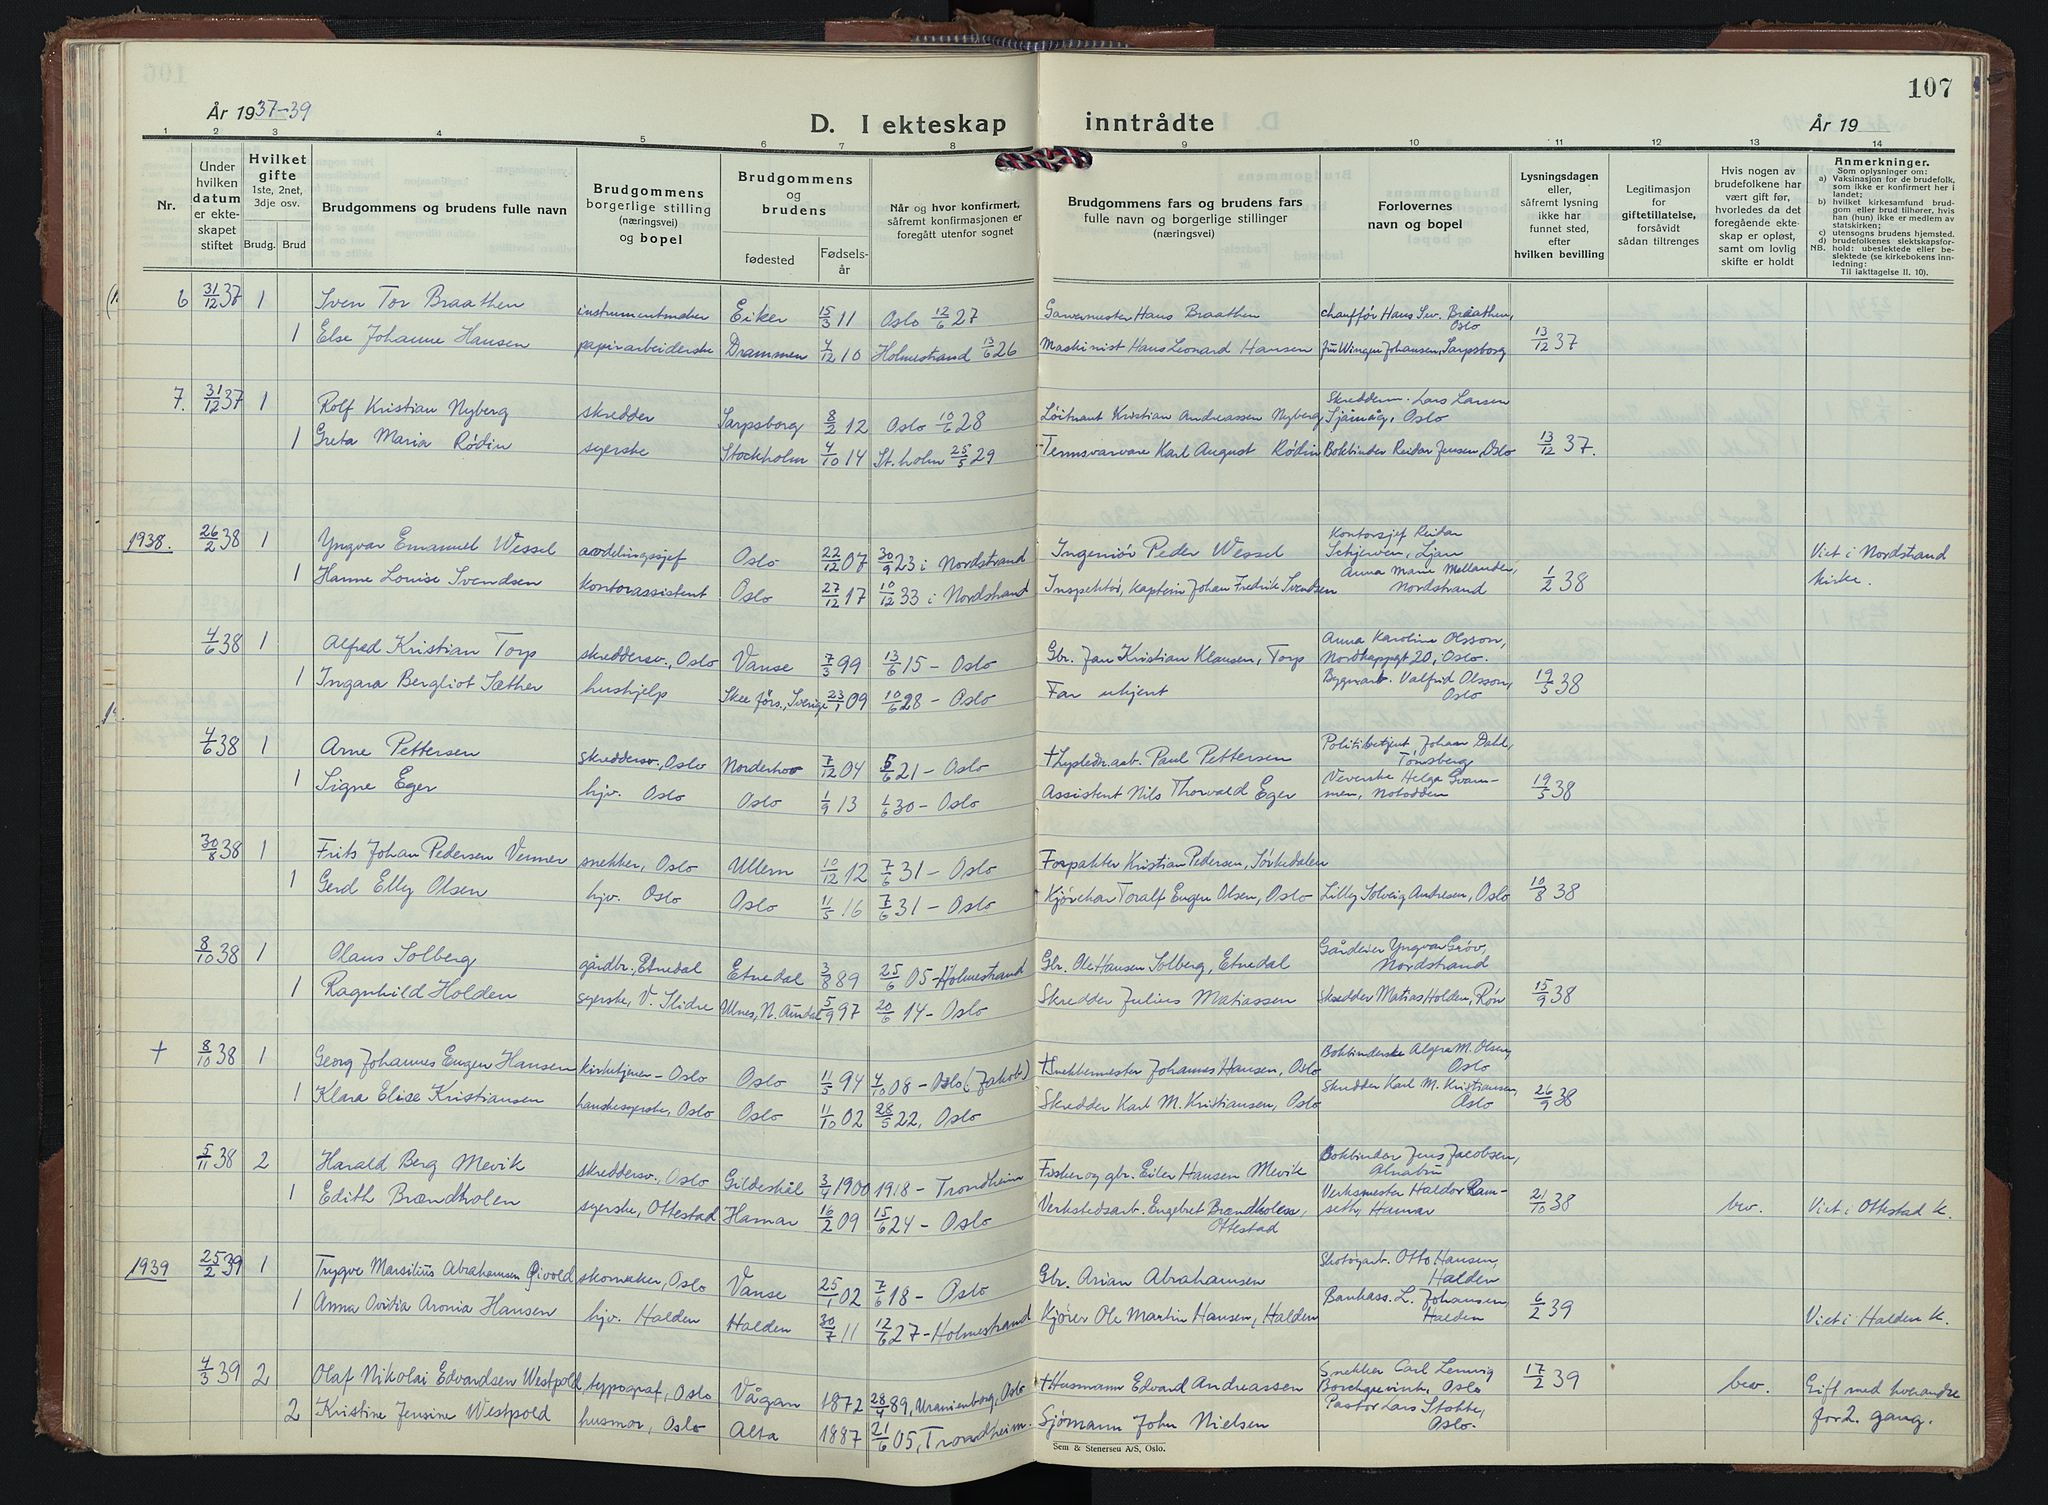 År 1937-39
D. I ekteskap inntrådte
107
År 19
1 2 3 4 5 6 7 8 9 10 11 12 13 14
Nr.
Under hvilken datum er ekteskapet stiftet
Hvilket gifte
1ste, 2net, 3dje osv.
Brudg. Brud
Brudgommens og brudens fulle navn
Brudgommens borgerlige stilling (næringsvei) og bopel
Brudgommens og brudens
fødested
Fødselsår
Når og hvor konfirmert, såfremt konfirmasjonen er foregått utenfor sognet
Brudgommens fars og brudens fars fulle navn og borgerlige stillinger (næringsvei)
Forlovernes navn og bopel
Lysningsdagen eller, såfremt lysning ikke har funnet sted, efter hvilken bevilling
Legitimasjon for giftetillatelse, forsåvidt sådan tiltrenges
Hvis nogen av brudefolkene har vært gift før, hvorledes da det foregående ekteskap er opløst, samt om lovlig skifte er holdt
Anmerkninger.
Som oplysning om:
a) Vaksinasjon for de brudefolk, som ikke er konfirmert her i landet;
b) hvilket kirkesamfund brudgom eller brud tilhører, hvis han (hun) ikke er medlem av statskirken;
c) utensogns brudens hjemsted.
d) brudefolkenes slektskapsforhold: ubeslektede eller beslektede (se kirkebokens innledning:
NB.
Til iakttagelse II. 10).
6 31/12 37 1 Sven Tor Braathen instrumentmaker Eiker 15/3 11 Oslo 12/6 27 Garvermester Hans Braathen chauffør Hans Sw. Braathen, Oslo
1 Else Johanne Hansen papirarbeiderske Drammen 4/12 10 Holmestrand 13/6 26 Maskinist Hans Leonard Hansen Johansen, Sarpsborg 13/12 37
7. 31/12 37 1 Rolf Kristian Nyberg skredder Sarpsborg 8/2 12 Oslo 10/6 28 Löitnant Kristian Andreassen Nyberg Skredderm. Lars Larsen Sjåmåg, Oslo
1 Greta Maria Rödin syerske Stockholm 4/10 14 St.holm 25/5 29 Karl August Rödin Bokbinder Reidar Jensen, Oslo 13/12 37.
1938. 26/2 38 1 Yngvar Emanuel Wessel avdelingssjef Oslo 22/12 07 30/9 23 i Nordstrand Ingeniör Peder Wessel Kontorsjef Reidar Schjerven, Ljan Viet i Nordstrand
1 Hanne Louise Svendsen kontorassistent Oslo 27/12 17 10/12 33 i Nordstrand Inspektör, kaptein Johan Fredrik Svendsen Anna Marie Mellander, Nordstrand 1/2 38 kirke.
4/6 38 1 Alfred Kristian Torp skreddersv., Oslo Vanse 7/3 99 13/6 15 - Oslo Gbr. Jan Kristian Klausen, Torp Anna Karoline Olsson, Nordkappgt 20, Oslo.
1 Ingara Bergliot Sæther hushjelp Skee förs., Sverige 23/1 09 10/6 28 - Oslo Far ukjent Bygnarb. Valfrid Olsson, Oslo 19/5 38
4/6 38 1 Arne Pettersen skreddersv., Oslo Norderhov 7/12 04 5/6 21 - Oslo Paul Pettersen Politibetjent Johan Dahl, Tönsberg
1 Signe Eger hjv. Oslo Oslo 1/9 13 1/6 30 - Oslo Assistent Nils Thorvald Eger Veverske Helga Svammen, Notodden 19/5 38
30/8 38 1 Frits Johan Pedersen Venner snekker, Oslo Ullern 10/12 12 7/6 31 - Oslo Forpakter Kristian Pedersen, Sörkedalen
1 Gerd Elly Olsen hjv. Oslo Oslo 11/5 16 7/6 31 - Oslo Toralf Eugen Olsen, Oslo Lilly Solveig Andresen, Oslo 10/8 38
8/10 38 1 Olaus Solberg gårdbr., Etnedal Etnedal 3/8 89 25/6 05 - Holmestrand Gbr. Ole Hansen Solberg, Etnedal Gårdeier Yngvar Gröv, Nordstrand
1 Ragnhild Holden syerske, V. Slidre Ulnes, N. Aurdal 5/9 97 20/6 14 - Oslo Skredder Julius Matiassen Skredder Matias Holden, Røn 15/9 38
+ 8/10 38 1 Georg Johannes Eugen Hansen kirketjener - Oslo Oslo 11/5 94 4/10 08 - Oslo (Jakob) + Snekkermester Johannes Hansen, Oslo Bokbinderske M. Olsen, Oslo
1 Klara Elise Kristiansen hanskesyerske, Oslo Oslo 11/10 02 28/5 22, Oslo Skredder Karl M. Kristiansen, Oslo Skredder Karl M. Kristiansen, Oslo 26/9 38
5/11 38 2 Harald Berg Mevik skreddersv., Oslo Gildeskål 3/4 1900 1918 - Trondheim Fisker og gbr. Eiler Hansen Mevik Bokbinder Jens Jacobsen, Alnabru
1 Edith Brændholen syerske, Ottestad Hamar 16/2 09 15/6 24 - Oslo Verkstedsarb. Engebret Brændholen, Ottestad Verksmester Haldor Ramseth, Hamar 21/10 38 bev. Viet i Ottestad k.
1939 25/2 39 1 Trygve Marsilius Abrahamsen Öivold skomaker, Oslo Vanse 25/1 02 7/6 18 - Oslo Gbr. Arian Abrahamsen Skotöyarb. Otto Hansen, Halden
1 Anna Ovidia Aronia Hansen hjv. Halden Halden 30/7 11 12/6 27 - Holmestrand Kjører Ole Martin Hansen, Halden Bankass. L. Johansen, Halden 6/2 39 Viet i Halden k.
4/3 39 2 Olaf Nikolai Edvardsen Westpold, typograf, Oslo Vågan 1872 28/4 89, Uranienborg, Oslo + Husmann Edvard Andreassen Snekker Carl Lemvig Borchgrevink, Oslo 17/2 39 bev. Gift med hverandre
2 Kristine Jensine Westpold husmor, Oslo Alta 1887 21/6 05, Trondheim. Sjømann John Nielsen Pastor Lars Stokke, Oslo. for 2. gang.
Sem & Stenersen A/S, Oslo.